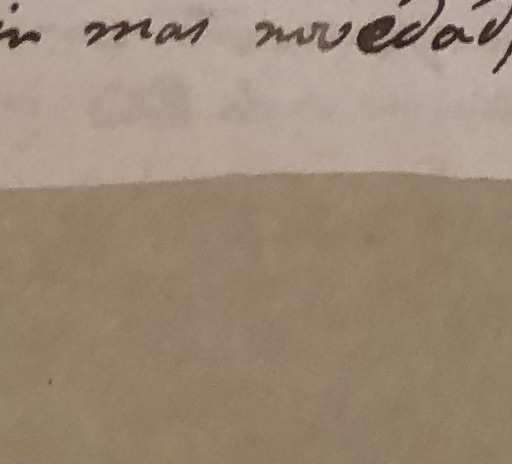 in mas novedad,